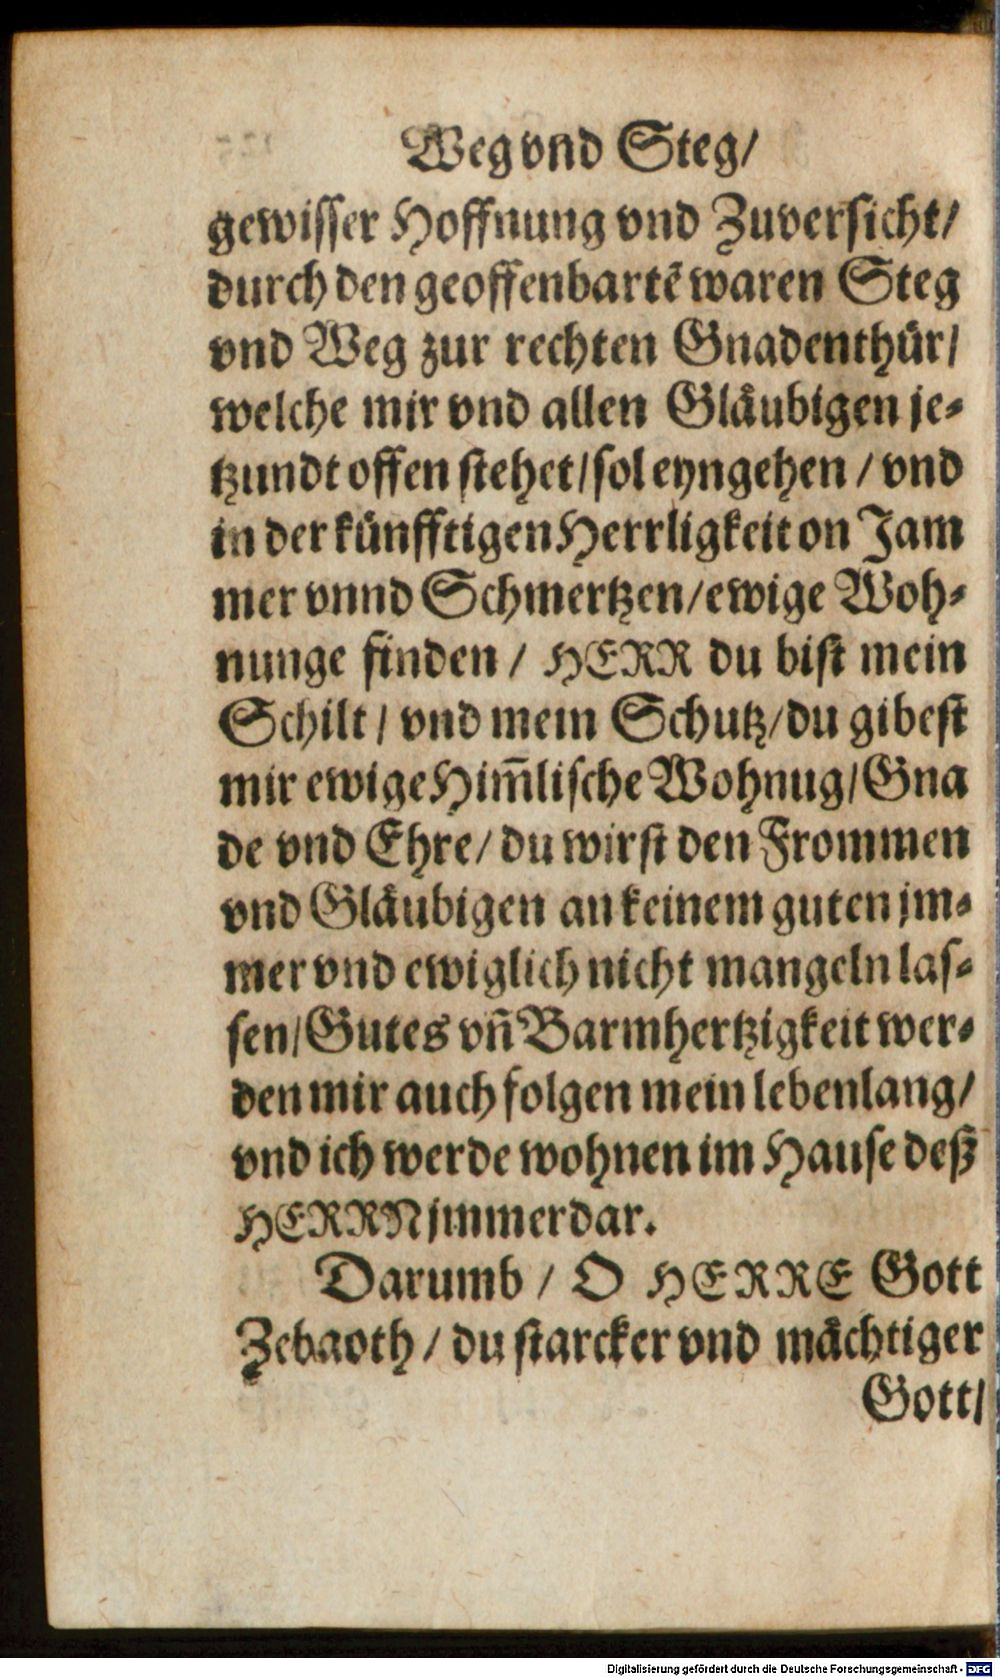 Weg vnd Steg/
gewisser Hoffnung vnd Zuversicht/
durch den geoffenbartẽ waren Steg
vnd Weg zur rechten Gnadenthür/
welche mir vnd allen Gläubigen je⸗
tzundt offen stehet/ sol eyngehen / vnd
in der künfftigen Herrligkeit on Jam
mer vnnd Schmertzen/ewige Woh⸗
nunge finden / HERR du bist mein
Schilt / vnd mein Schutz/du gibest
mir ewige Him̃lische Wohnug/Gna
de vnd Ehre/ du wirst den Frommen
vnd Gläubigen an keinem guten jm⸗
mer vnd ewiglich nicht mangeln las⸗
sen/Gutes vñ Barmhertzigkeit wer⸗
den mir auch folgen mein lebenlang/
vnd ich werde wohnen im Hause deß
HERRN jmmerdar.
Darumb / O HERRE Gott
Zebaoth / du starcker vnd mächtiger
Gott/
Digitalisierung gefördert durch die Deutsche Forschungsgemeinschaft - DFG